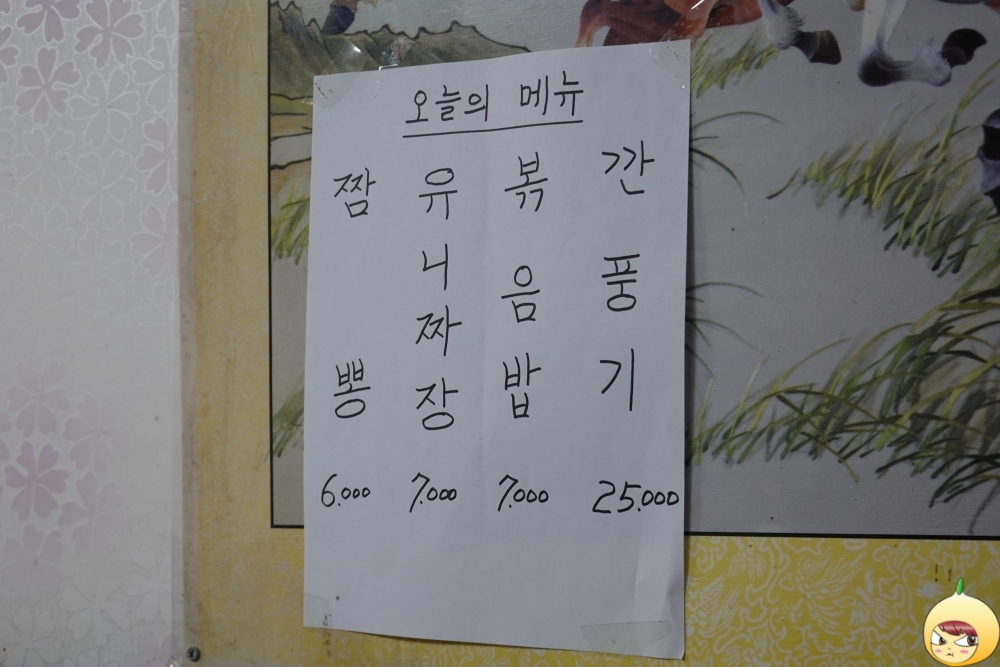 오늘의 메뉴
짬뽕 6.000
유니짜장 7.000
볶음밥 7.000
깐풍기 25.000